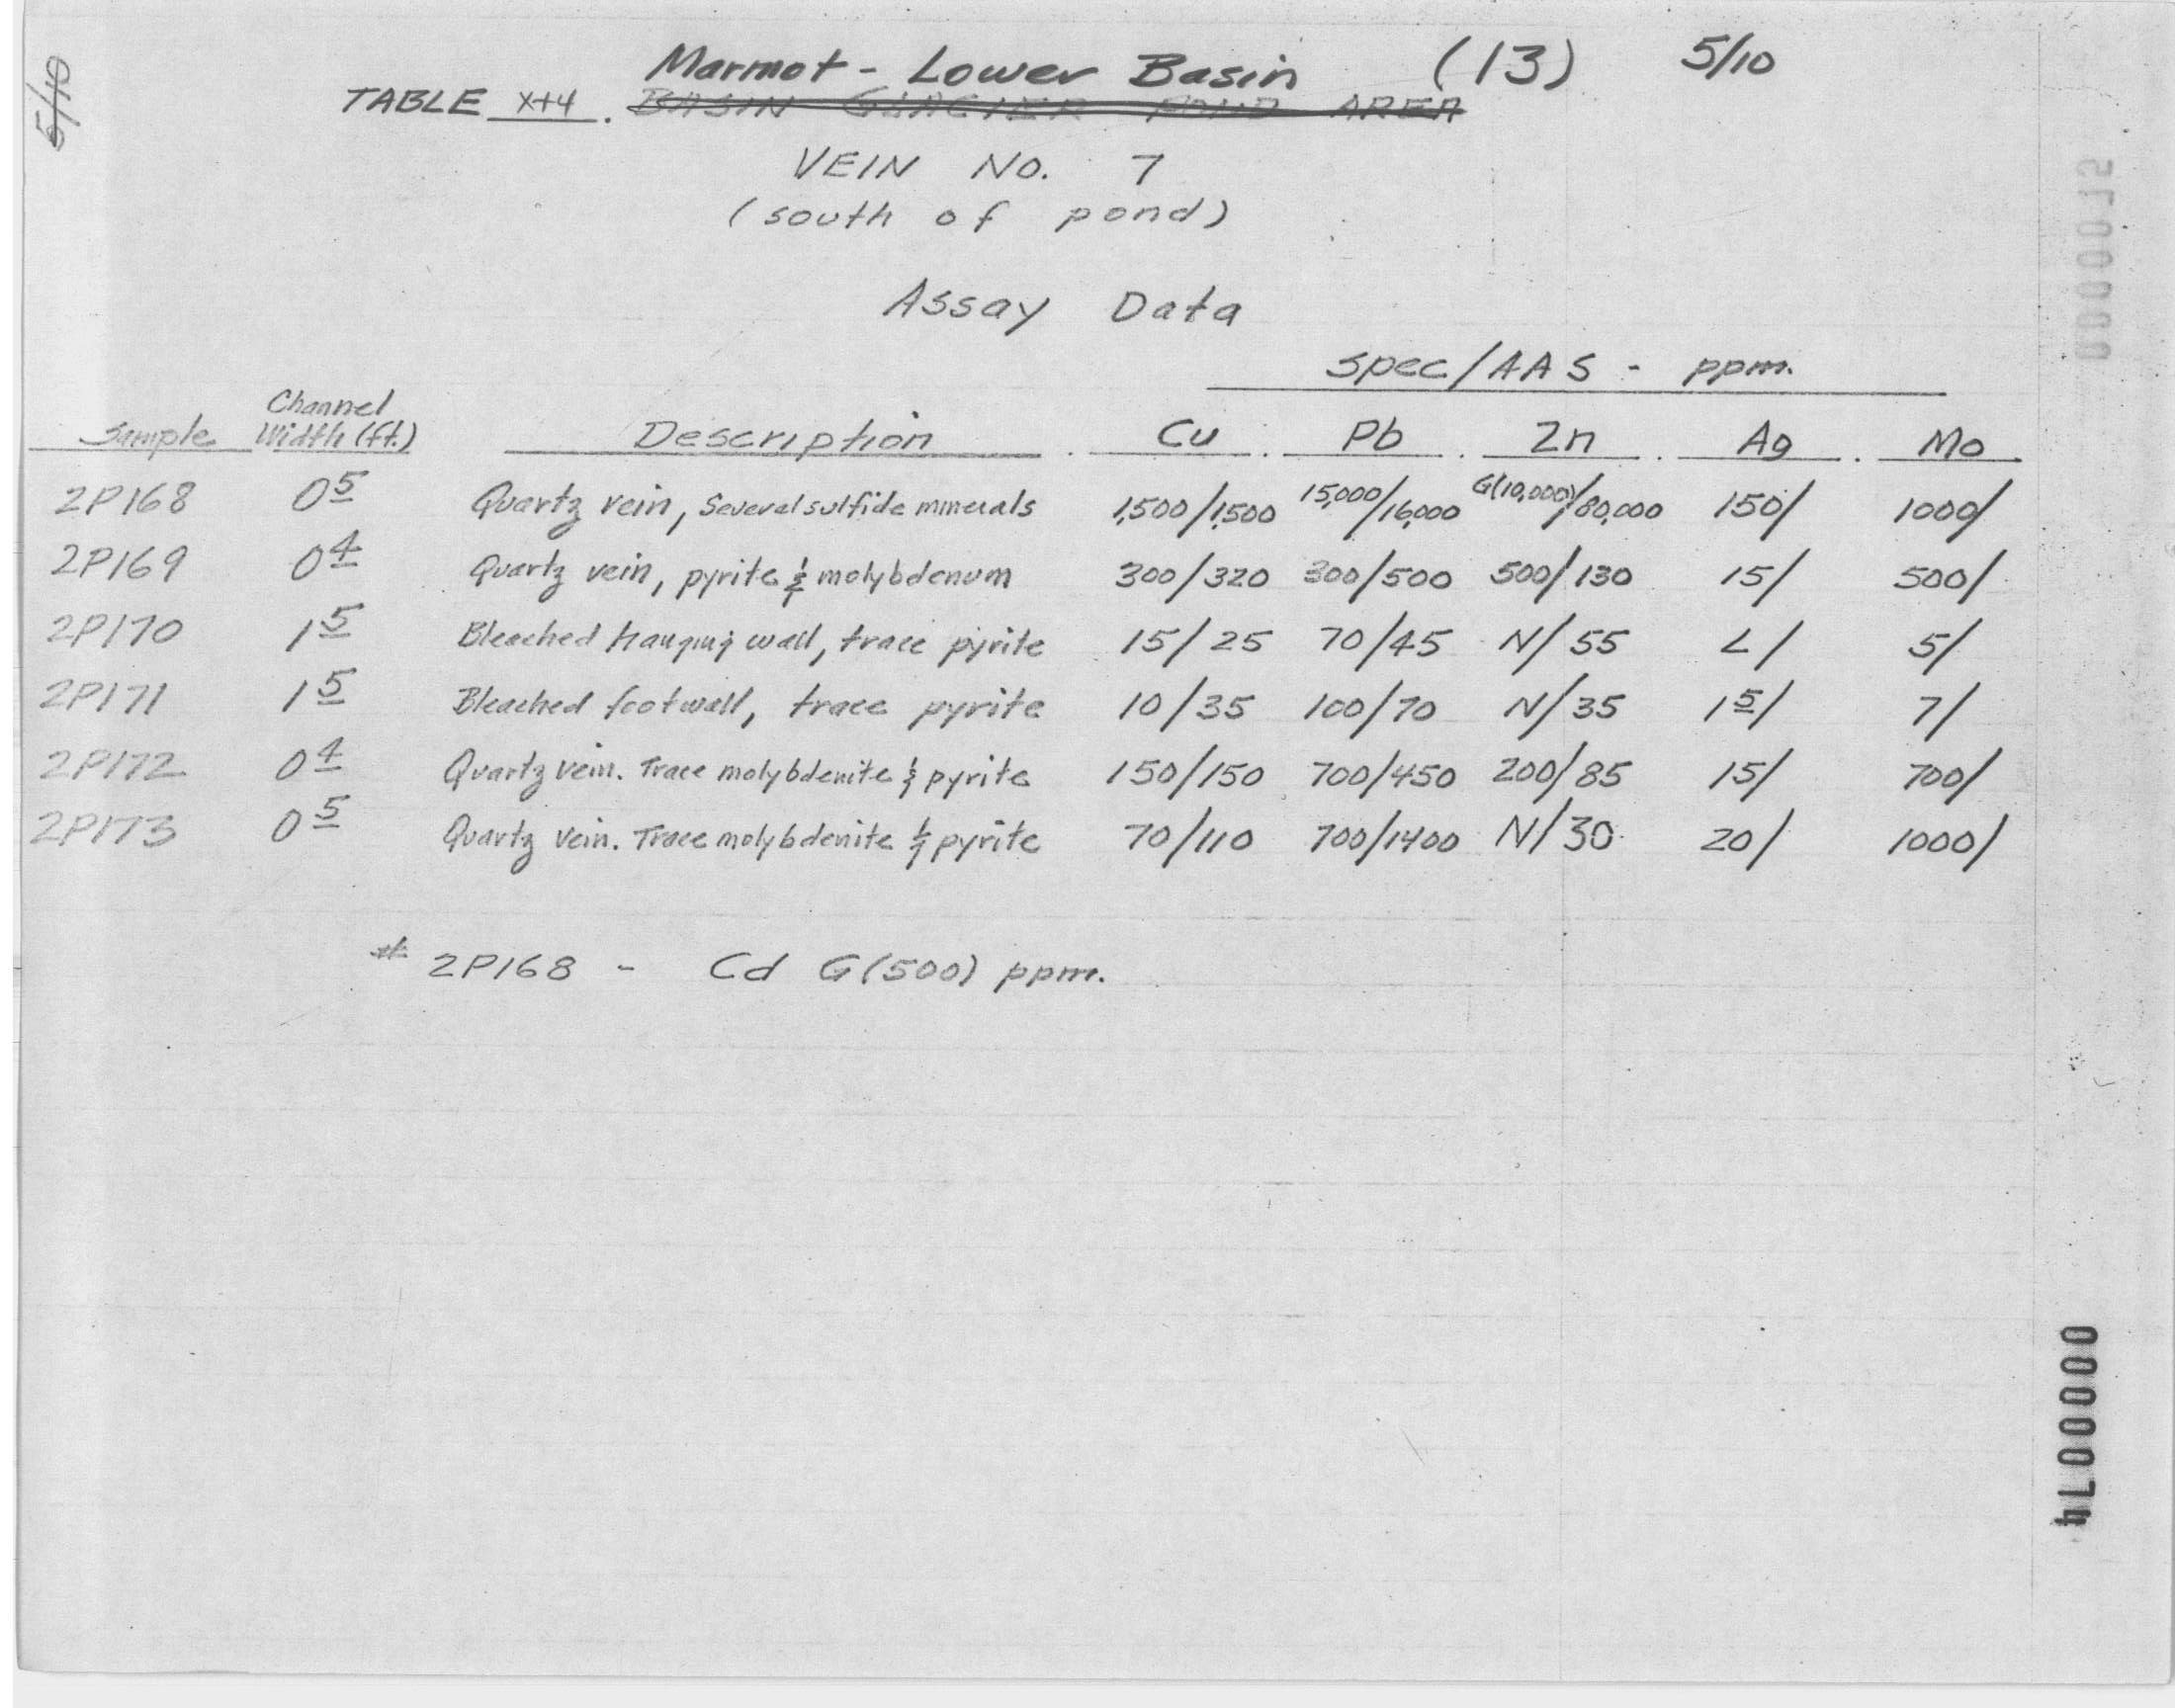 5/10
Marmot - Lower Basin (13) 5/10
TABLE X+4. BASIN GLACIER POND AREA
VEIN NO. 7
(south of pond)
Assay Data
spec/AAS - ppm.
Sample Channel Width (ft.) Description Cu Pb Zn Ag Mo
2P168 0 5 Quartz vein, Several sulfide minerals 1,500/1,500 15,000/16,000 G(10,000)/80,000 150/ 1000/
2P169 0 4 Quartz vein, pyrite & molybdenum 300/320 300/500 500/130 15/ 500/
2P170 1 5 Bleached hanging wall, trace pyrite 15/25 70/45 N/55 L/ 5/
2P171 1 5 Bleached footwall, trace pyrite 10/35 100/70 N/35 1 5/ 7/
2P172 0 4 Quartz vein. Trace molybdenite & pyrite 150/150 700/450 200/85 15/ 700/
2P173 0 5 Quartz vein. Trace molybdenite & pyrite 70/110 700/1400 N/30 20/ 1000/
* 2P168 - Cd G(500) ppm.
0000015
0000074